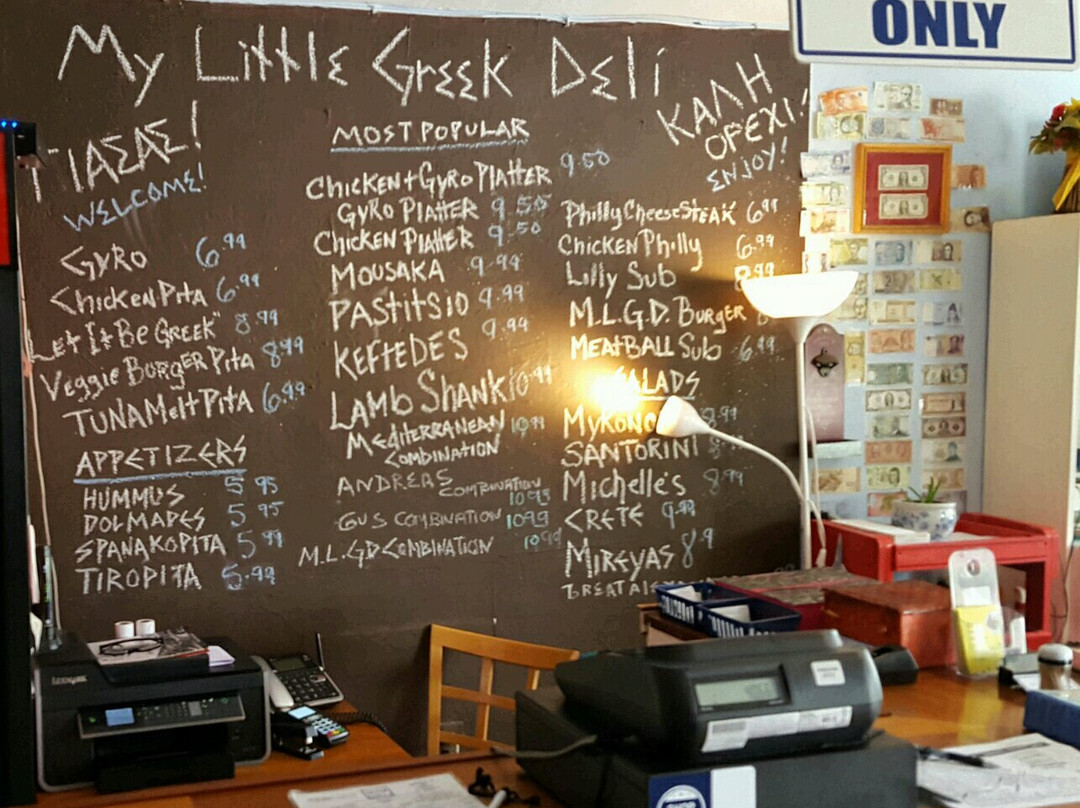 ONLY
My Little Greek Deli
ΓΙΑΣΑΣ!
WELCOME!
GYRO 6.99
CHICKEN PITA 6.99
Let It Be GREEK" 8.99
Veggie BURGER PITA 8.99
TUNA Melt PITA 6.99
APPETIZERS
HUMMUS 5.95
DOLMADES 5.95
SPANAKOPITA 5.99
TIROPITA 5.99
MOST POPULAR
CHICKEN + GYRO PLATTER 9.50
GYRO PLATTER 9.50
CHICKEN PLATTER 9.50
MOUSAKA 9.99
PASTITSIO 9.99
KEFTEDES 9.99
LAMB SHANK 10.99
MEDITERRANEAN 10.99
COMBINATION
ANDREAS COMBINATION
10.95
GUS COMBINATION 10.99
M.L.GD COMBINATION 10.99
ΚΑΛΗ
ΟΡΕΧΙ!
ENJOY!
Philly Cheese STEAK 6.99
CHICKEN Philly 6.99
Lilly Sub 8.99
M.L.G.D. BURGER
MEATBALL SUB 6.99
SALADS
MYKONO 8.99
SANTORINI
Michelle's 8.99
CRETE 9.99
MIREYAS 8.9
Lexmark